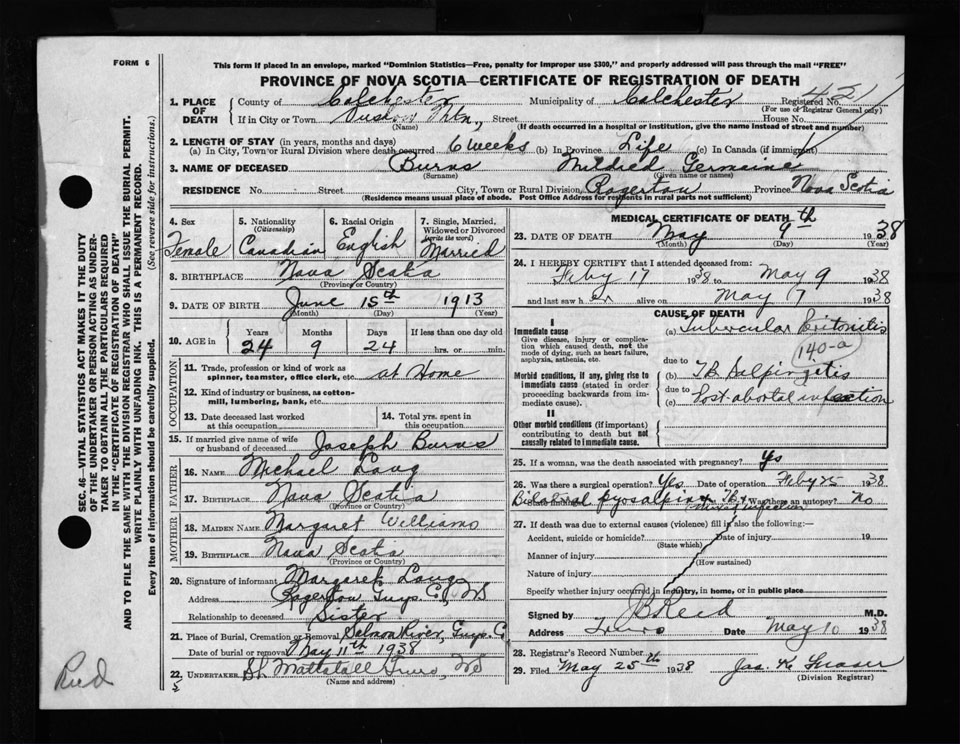 FORM 6
This form if placed in an envelope, marked "Dominion Statistics—Free, penalty for improper use $300," and properly addressed will pass through the mail "FREE"
PROVINCE OF NOVA SCOTIA—CERTIFICATE OF REGISTRATION OF DEATH
1. PLACE OF DEATH County of Colchester Municipality of Colchester Registered No. 421
(For use of Registrar General only)
If in City or Town Mtn., Street House No.
(Name) (If death occurred in a hospital or institution, give the name instead of street and number)
2. LENGTH OF STAY (in years, months and days)
(a) In City, Town or Rural Division where death occurred 6 weeks (b) In Province Life (c) In Canada (if immigrant)
3. NAME OF DECEASED Burns Mildred Germaine
(Surname) (Given name or names)
RESIDENCE No. Street City, Town or Rural Division Rogerton Province Nova Scotia
(Residence means usual place of abode. Post Office Address for residents in rural parts not sufficient)
4. Sex Female
5. Nationality (Citizenship) Canadian
6. Racial Origin English
7. Single, Married, Widowed or Divorced (write the word) Married
8. BIRTHPLACE Nova Scotia
(Province or Country)
9. DATE OF BIRTH June 15th 1913
(Month) (Day) (Year)
10. AGE in Years Months Days If less than one day old
24 9 24 hrs. or min.
OCCUPATION
11. Trade, profession or kind of work as spinner, teamster, office clerk, etc. at Home
12. Kind of industry or business, as cotton-mill, lumbering, bank, etc.
13. Date deceased last worked at this occupation
14. Total yrs. spent in this occupation
15. If married give name of wife or husband of deceased Joseph Burns
FATHER
16. NAME Michael Long
17. BIRTHPLACE Nova Scotia
(Province or Country)
MOTHER
18. MAIDEN NAME Margaret Williams
19. BIRTHPLACE Nova Scotia
(Province or Country)
20. Signature of informant Margaret Long
Address Rogerton Guys. Co, NS
Relationship to deceased Sister
21. Place of Burial, Cremation or Removal Salmon River, Guys. C
Date of burial or removal May 11th 1938
22. UNDERTAKER Mattatall Truro, NS
(Name and address)
MEDICAL CERTIFICATE OF DEATH
23. DATE OF DEATH May 9th 1938
(Month) (Day) (Year)
24. I HEREBY CERTIFY that I attended deceased from:
Feby 17 1938 to May 9 1938
and last saw her alive on May 7 1938
CAUSE OF DEATH
I
Immediate cause
Give disease, injury or complication which caused death, not the mode of dying, such as heart failure, asphyxia, asthenia, etc.
(a) Tubercular Peritonitis
140-a
due to
Morbid conditions, if any, giving rise to immediate cause (stated in order proceeding backwards from immediate cause).
(b) TB Salpingitis
due to
(c) Post-abortal infection
II
Other morbid conditions (if important) contributing to death but not causally related to immediate cause.
25. If a woman, was the death associated with pregnancy? Yes
26. Was there a surgical operation? Yes Date of operation Feby 25 1938
State findings Bilateral pyosalpinx TB & Mixed infection Was there an autopsy? No
27. If death was due to external causes (violence) fill in also the following:—
Accident, suicide or homicide? Date of injury 19
(State which)
Manner of injury
(How sustained)
Nature of injury
Specify whether injury occurred in industry, in home, or in public place
Signed by JB Reid M.D.
Address Truro Date May 10 1938
28. Registrar's Record Number
29. Filed May 25th 1938 Jas. K. Fraser
(Division Registrar)
SEC. 46—VITAL STATISTICS ACT MAKES IT THE DUTY
OF THE UNDERTAKER OR PERSON ACTING AS UNDER-
TAKER TO OBTAIN ALL THE PARTICULARS REQUIRED
IN THE "CERTIFICATE OF REGISTRATION OF DEATH"
AND TO FILE THE SAME WITH THE DIVISION REGISTRAR WHO SHALL ISSUE THE BURIAL PERMIT.
WRITE PLAINLY WITH UNFADING INK. THIS IS A PERMANENT RECORD.
Every item of information should be carefully supplied. (See reverse side for instructions.)
Reid